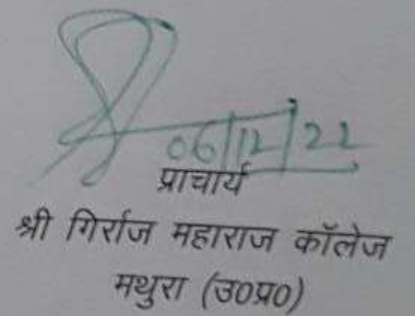 06/12/22
प्राचार्य
श्री गिर्राज महाराज कॉलेज
मथुरा (उ०प्र०)